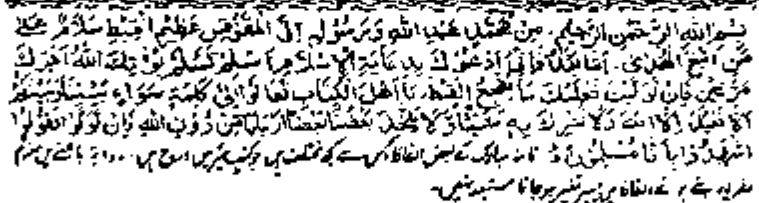 بسم الله الرحمن الرحيم. من محمد عبد الله ورسوله الى المقوقس عظيم القبط سلام على
من اتبع الهدى. اما بعد فانى ادعوك بدعاية الاسلام اسلم تسلم يؤتك الله اجرك
مرتين فان توليت فعليك اثم القبط، يا اهل الكتاب تعالوا الى كلمة سواء بيننا وبينكم
الا نعبد الا الله ولا نشرك به شيئا ولا يتخذ بعضنا بعضا اربابا من دون الله فان تولوا فقولوا
اشهدوا بانا مسلمون نامہ مبارک کے بعض الفاظ اس سے کچھ مختلف ہیں
ہو جانا مستبعد نہیں۔